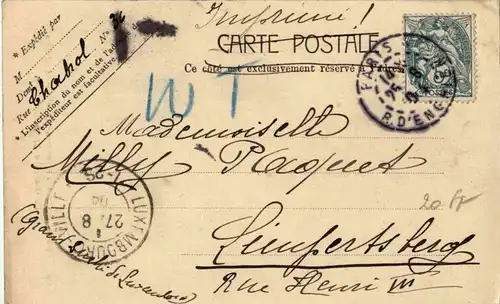 Imprimé!
* Expédié par
M
Dom
Rue Chabrol Nº 26
* L'inscription du nom et de l'adresse de
l'expéditeur est facultative.
CARTE POSTALE
Ce côté est exclusivement réservé à l'adresse
WT
PARIS
25 8
R. D'ENGHIEN
Mademoiselle
Milly Paquet
Limpertsberg
Rue Henri VII
(Grand Duché de Luxembourg)
LUXEMBOURG VILLE
27 8
04
20 fr